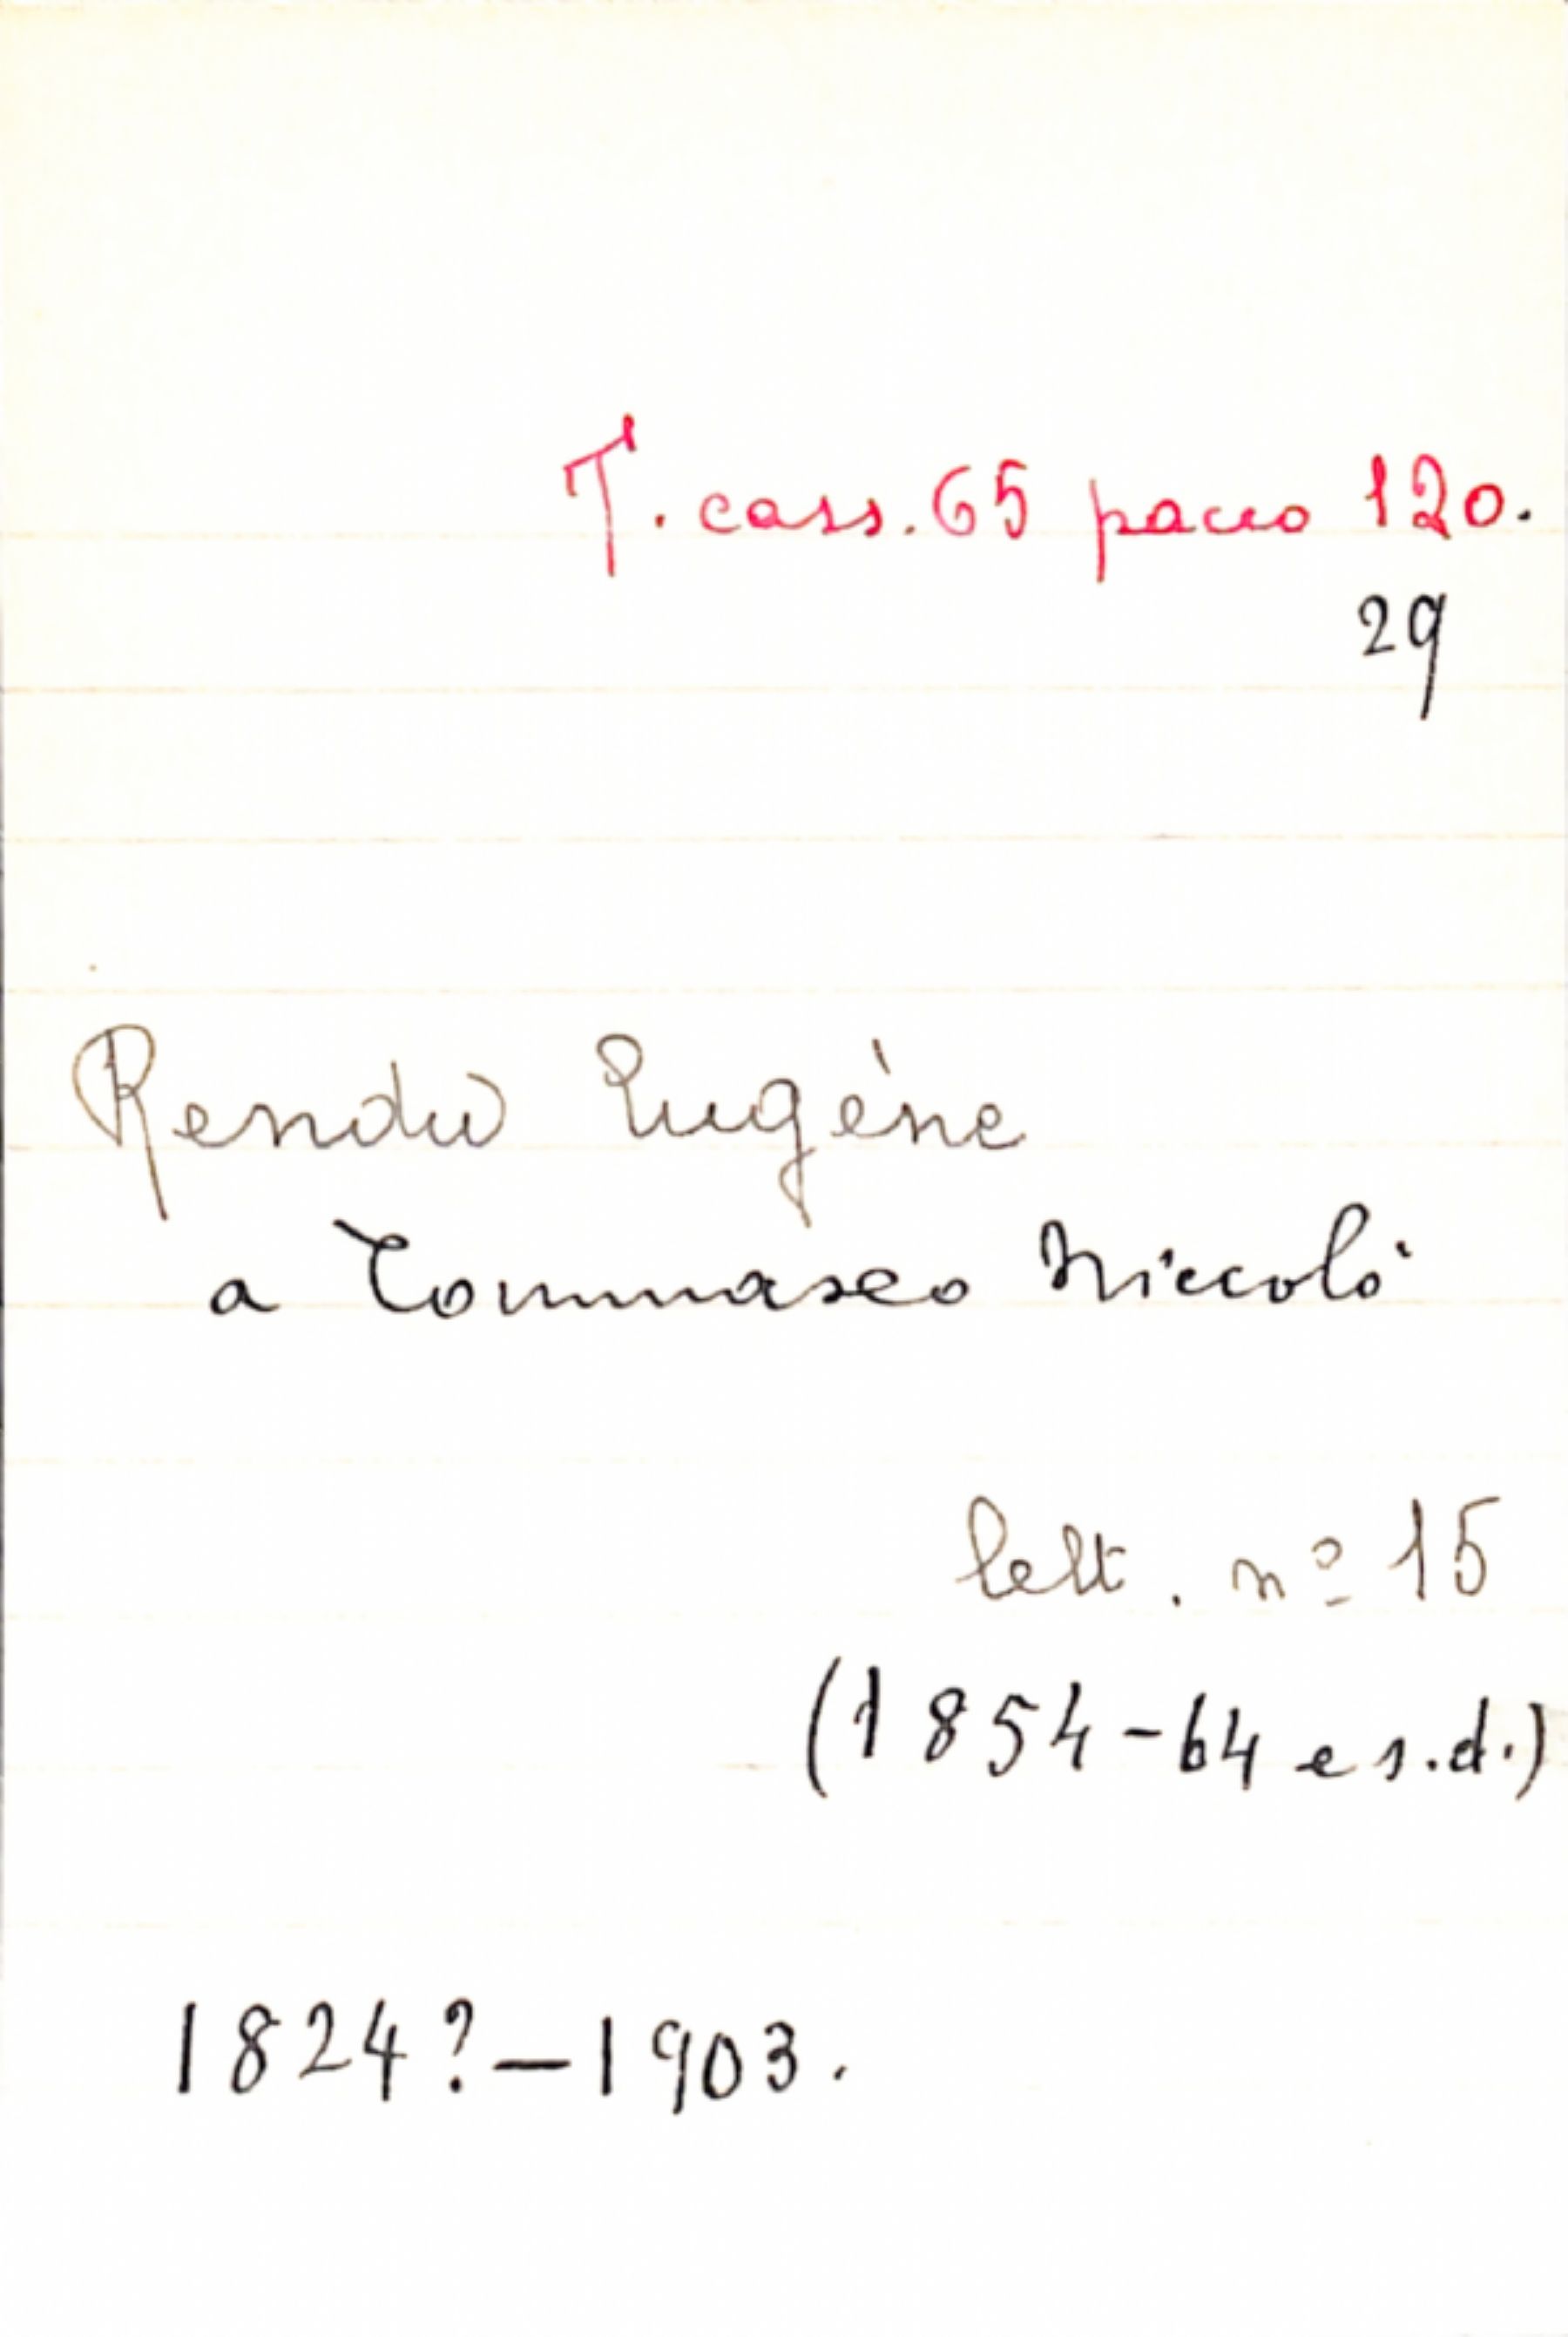 T. cass. 65 pacco 120.
29
Rendu Eugéne
a Tommaseo Niccolò
lett. nº 15
(1854-64 e s.d.)
1824?-1903.